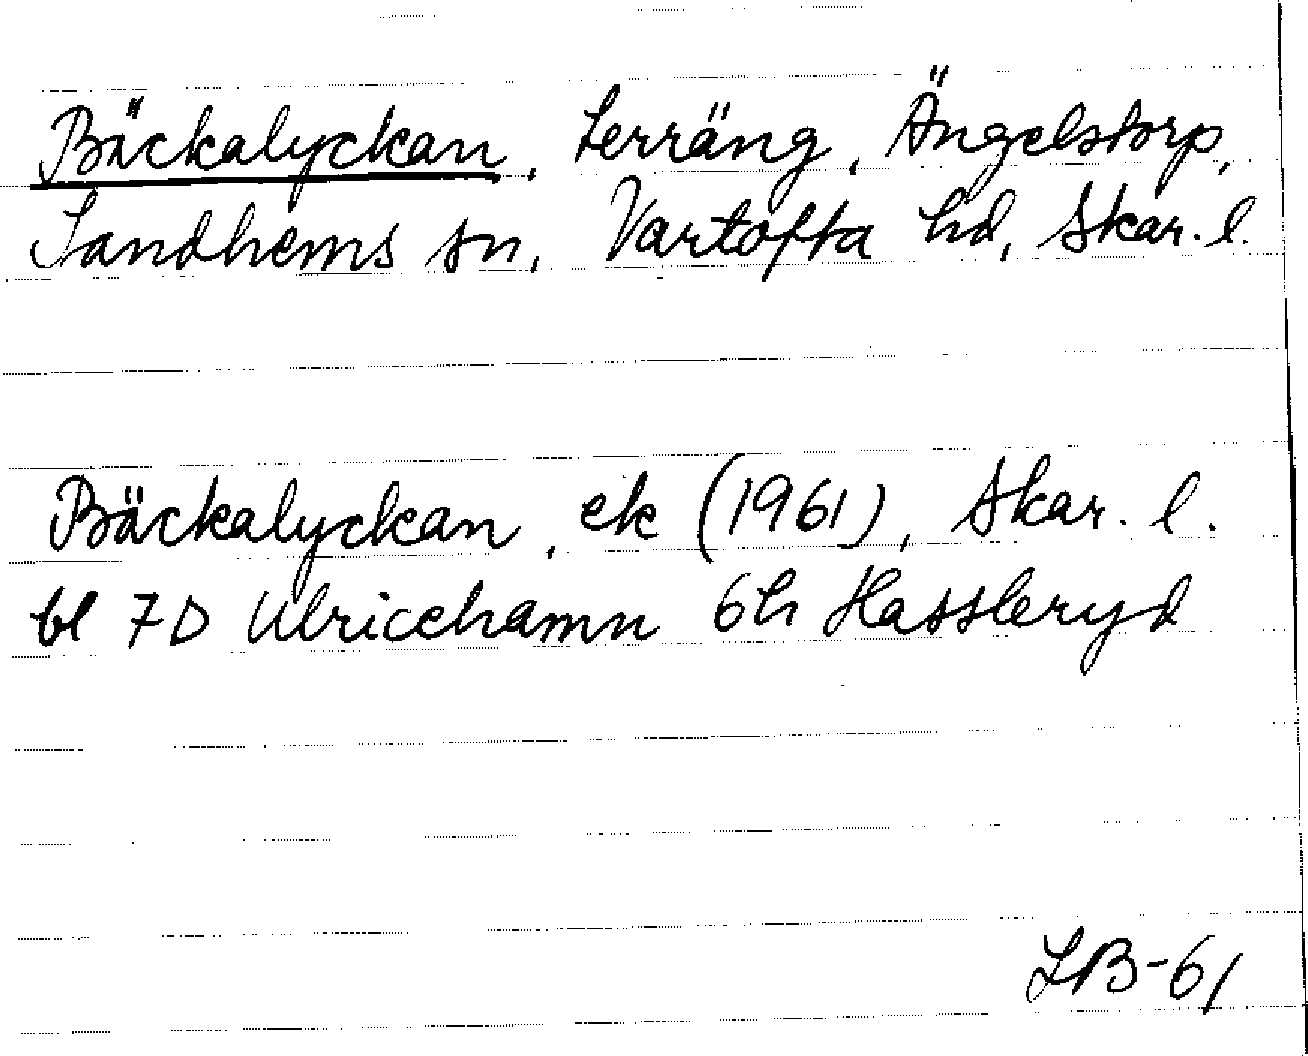 Bäckalyckan, terräng, Ängelstorp,
Sandhems sn, Vartofta hd, Skar. l.
Bäckalyckan, ek (1961), Skar. l.
bl 7D Ulricehamn 6h Hassleryd
LB-61